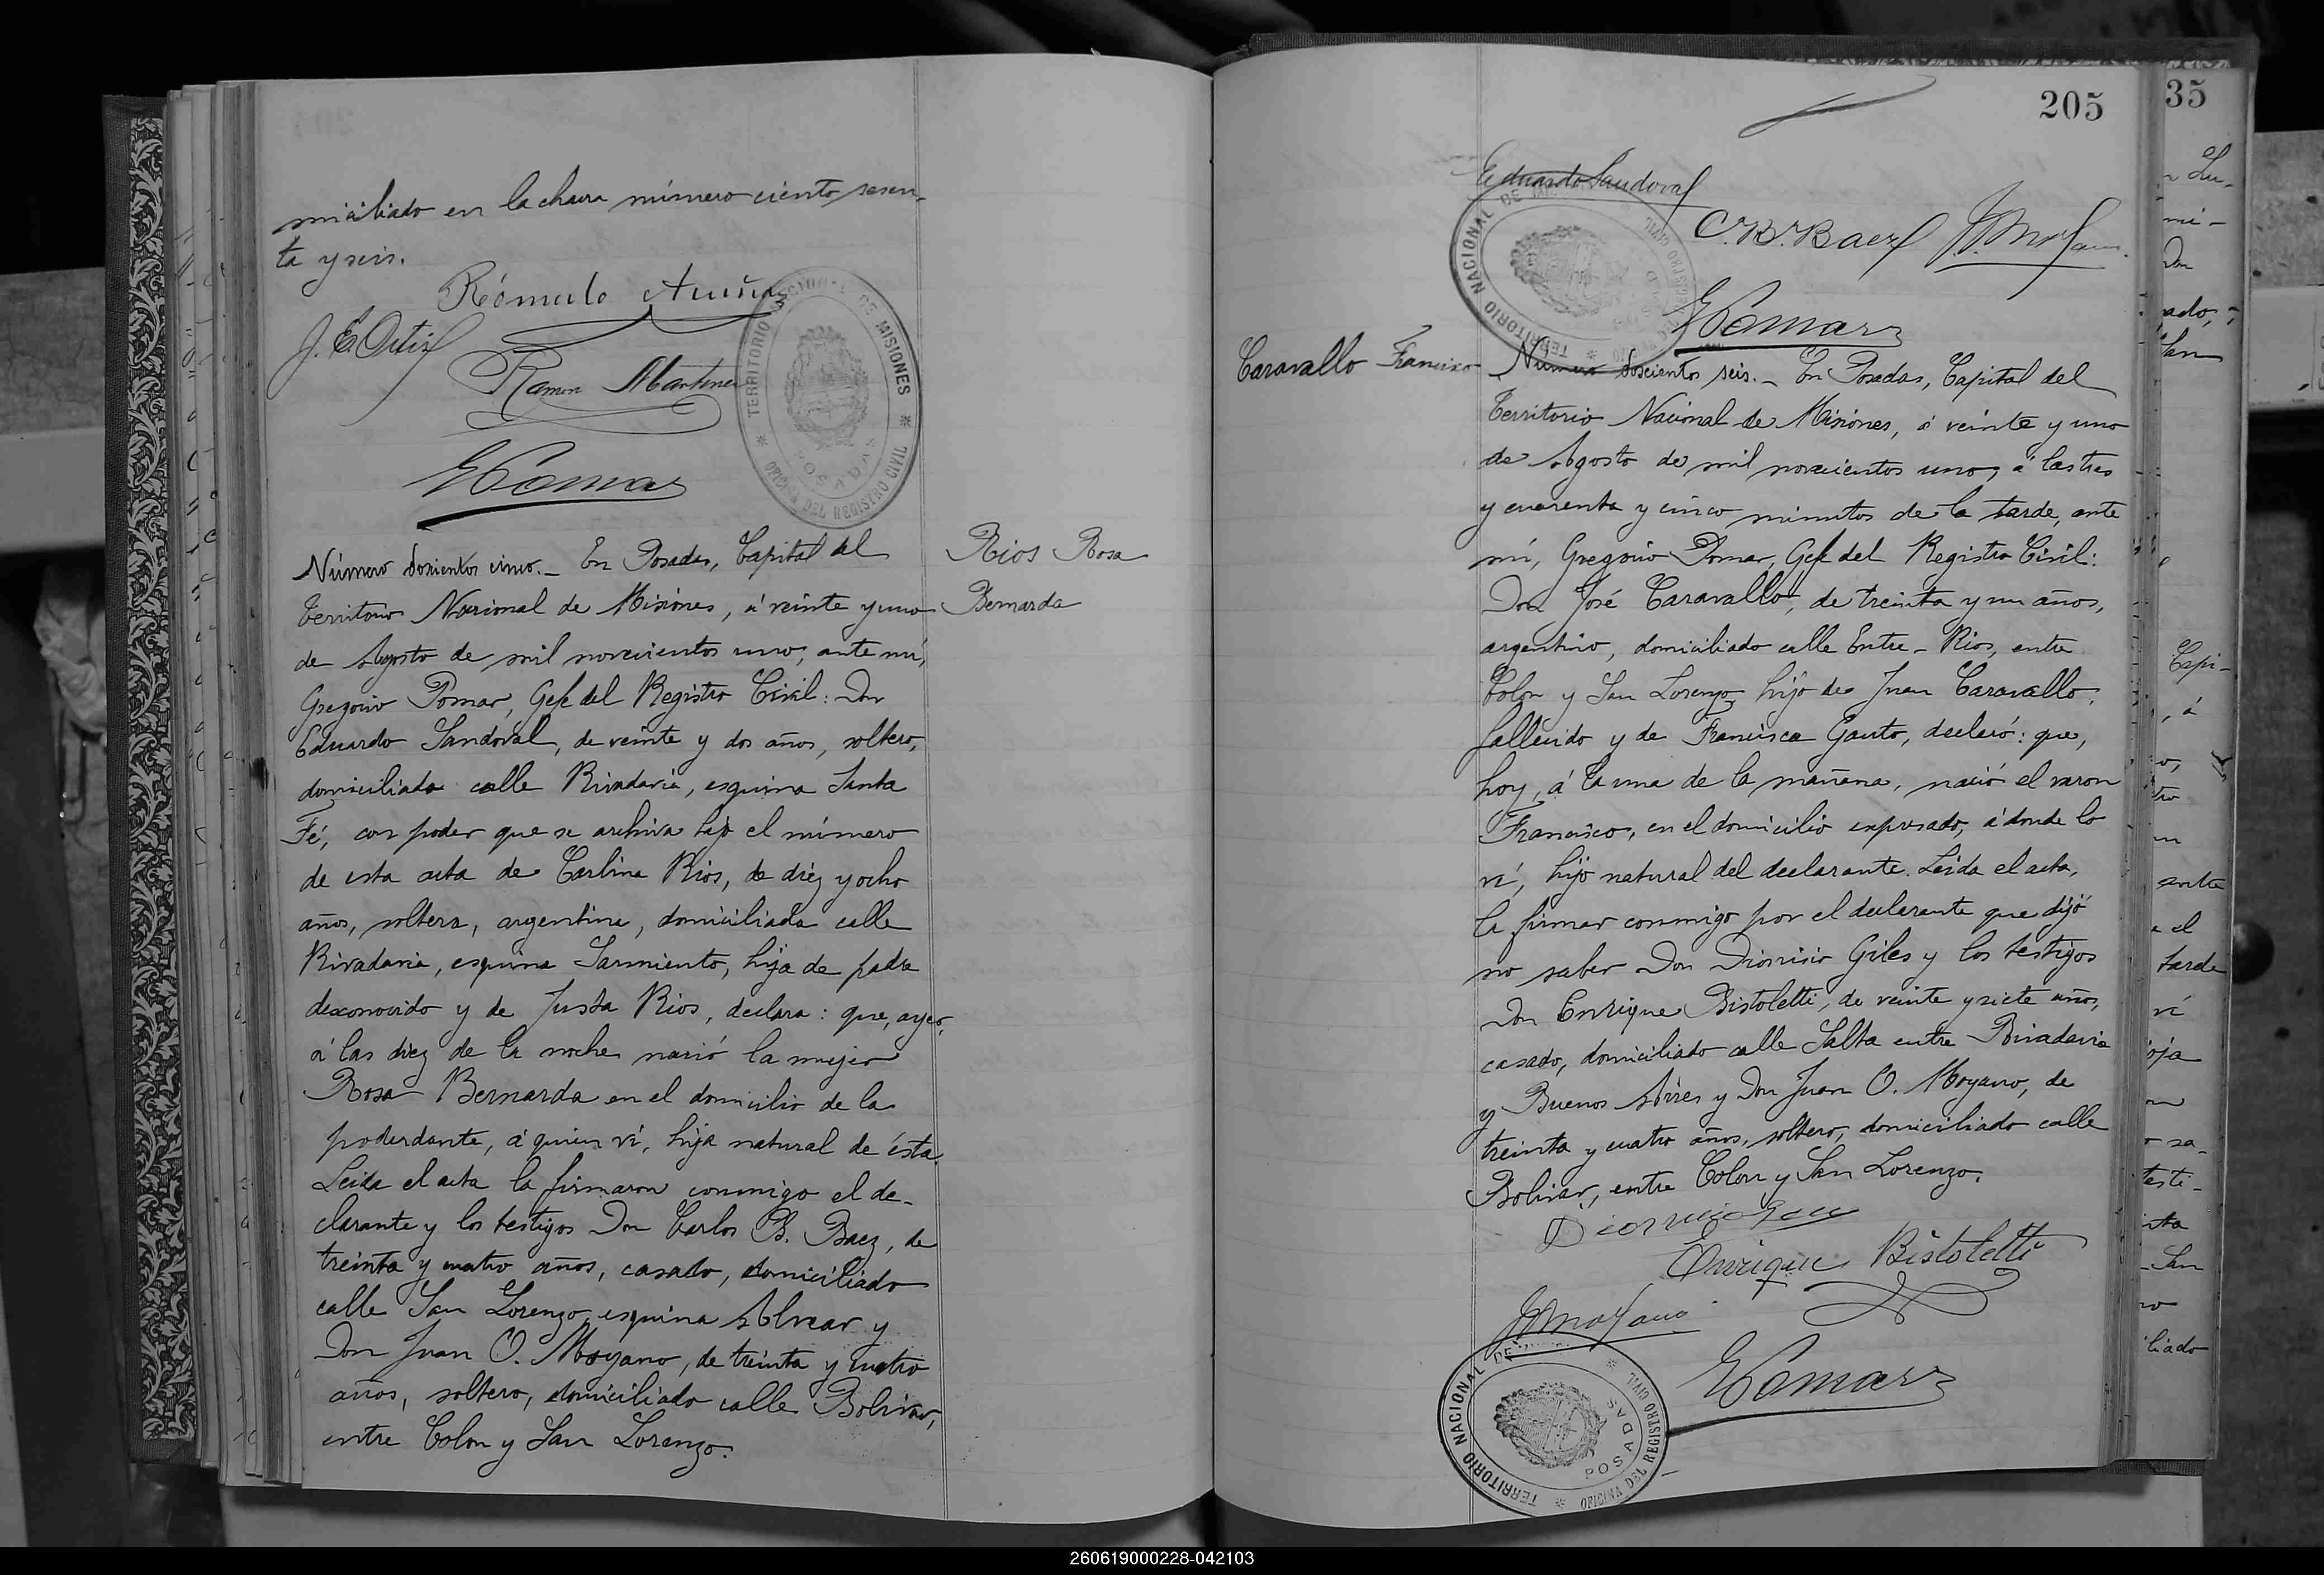 miciliado en la chacra número ciento sesen-
ta y seis.
Rómulo Acuña
J. E. Ortiz
Ramon Martinez
GPomar
TERRITORIO NACIONAL DE MISIONES
OFICINA DEL REGISTRO CIVIL
POSADAS
Rios Rosa
Bernarda
Número doscientos cinco.- En Posadas, Capital del
Territorio Nacional de Misiones, á veinte y uno
de Agosto de mil novecientos uno, ante mí,
Gregorio Pomar, Gefe del Registro Civil: Don
Eduardo Sandoval, de veinte y dos años, soltero,
domiciliado calle Rivadavia, esquina Santa
Fé, con poder que se archiva bajo el número
de esta acta de Carlina Rios, de diez y ocho
años, soltera, argentina, domiciliada calle
Rivadavia, esquina Sarmiento, hija de padre
desconocido y de Justa Rios, declara: que, ayer,
á las diez de la noche nació la mujer
Rosa Bernarda en el domicilio de la
poderdante, á quien ví, hija natural de ésta.
Leida el acta la firmaron conmigo el de-
clarante y los testigos Don Carlos B. Baez, de
treinta y cuatro años, casado, domiciliado
calle San Lorenzo esquina Alvear y
Don Juan O. Moyano, de treinta y cuatro
años, soltero, domiciliado calle Bolivar,
entre Colon y San Lorenzo.
205
Eduardo Sandoval
C. B. Baez
J. O. Moyano
GPomar
TERRITORIO NACIONAL DE
REGISTRO CIVIL
Caravallo Francisco
Número doscientos seis.- En Posadas, Capital del
Territorio Nacional de Misiones, á veinte y uno
de Agosto de mil novecientos uno, á las tres
y cuarenta y cinco minutos de la tarde, ante
mí, Gregorio Pomar, Gefe del Registro Civil:
Don José Caravallo, de treinta y un años,
argentino, domiciliado calle Entre-Rios, entre
Colon y San Lorenzo, hijo de Juan Caravallo,
fallecido y de Francisca Gauto, declaró: que,
hoy, á la una de la mañana, nació el varon
Francisco, en el domicilio expresado, á donde lo
ví, hijo natural del declarante. Leida el acta,
la firmar conmigo por el declarante que dijo
no saber Don Dionisio Giles y los testigos
Don Enrique Bistoletti, de veinte y siete años,
casado, domiciliado calle Salta entre Rivadavia
y Buenos Aires y Don Juan O. Moyano, de
treinta y cuatro años, soltero, domiciliado calle
Bolivar, entre Colon y San Lorenzo.
Dionicio
Enrique Bistoletti
J. O. Moyano
GPomar
TERRITORIO NACIONAL DE
OFICINA DEL REGISTRO CIVIL
POSADAS
35
Lu-
mi-
Don
San
Capi-
, á
ante
el
tarde
ví
oja
sa-
testi-
San
liado
260619000228-042103